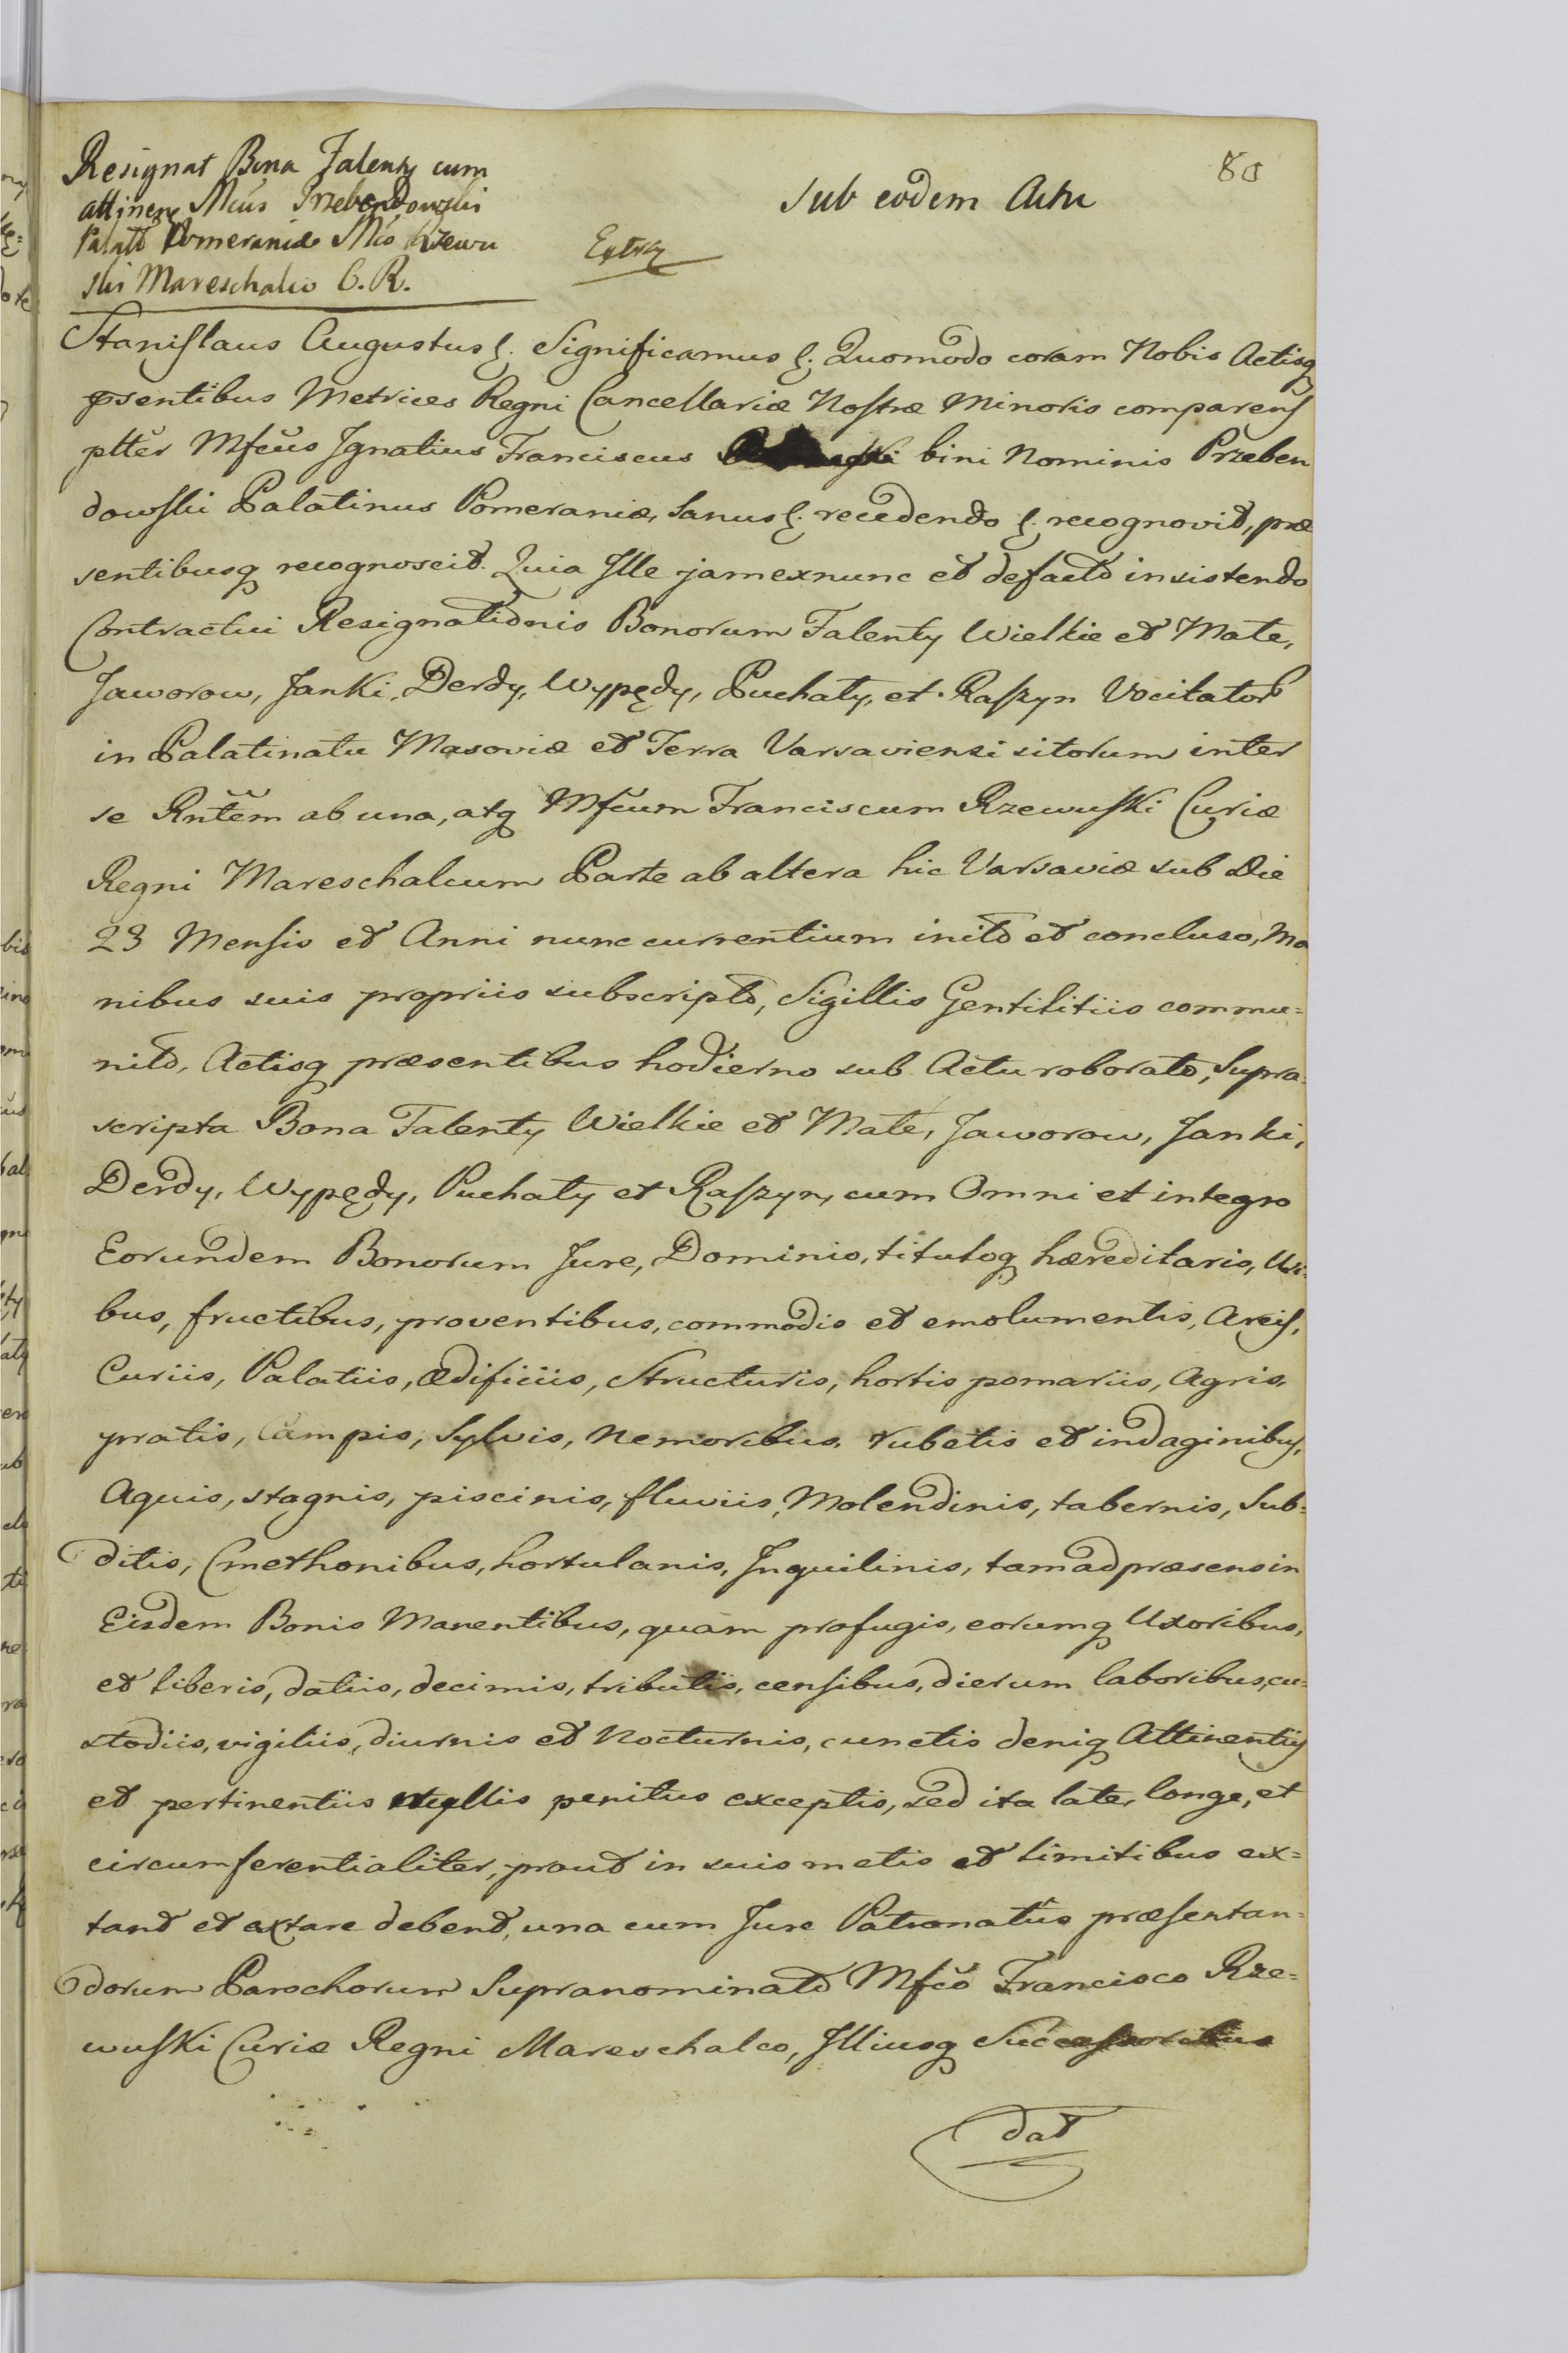 80
Resignat Bona Falenty cum
attinen Mcus Przebendowski
Palat Pomeraniæ Mco Rzewu
ski Mareschalco C. R.
Sub eodem Actu
Extr
Stanislaus Augustus &. Significamus &. Quomodo coram Nobis Actisq
psentibus Metrices Regni Cancellariæ Nostræ Minoris comparens
pltter Mfcus Ignatius Franciscus bini Nominis Przeben
dowski Palatinus Pomeraniæ, Sanus &. recedendo &. recognovit, præ
sentibusq recognoscit. Quia Ille jam exnunc et defacto insistendo
Contractui Resignationis Bonorum Falenty Wielkie et Małe,
Jaworow, Janki, Derdy, Wypędy, Puchały, et Raszyn Vocitator
in Palatinatu Masoviæ et Terra Varsaviensi sitorum inter
se Rntem ab una, atq Mfcum Franciscum Rzewuski Curiæ
Regni Mareschalcum Parte ab altera hic Varsaviæ sub Die
23 Mensis et Anni nunc currentium inito et concluso, Ma
nibus suis propriis subscripto, Sigillis Gentilitiis commu=
nito, Actisq præsentibus hodierno sub Actu roborato, Supra=
scripta Bona Falenty Wielkie et Małe, Jaworow, Janki,
Derdy, Wypędy, Puchały et Raszyn, cum Omni et integro
Eorundem Bonorum Jure, Dominio, tituloq hæreditario, Usi=
bus, fructibus, proventibus, commodis et emolumentis, Areis,
Curiis, Palatiis, ædificiis, Structuris, hortis pomariis, Agris,
pratis, Campis, Sylvis, Nemoribus, rubetis et indaginibus,
Aquis, stagnis, piscinis, fluviis, Molendinis, tabernis, Sub=
ditis, Cmethonibus, hortulanis, Inquilinis, tam ad præsens in
Eisdem Bonis Manentibus, quam profugis, eorumq Uxoribus,
et liberis, datiis, decimis, tributis, censibus, dierum laboribus, cu=
stodiis, vigiliis, diurnis et Nocturnis, cunctis deniq Attinentiis
et pertinentiis nullis penitus exceptis, sed ita late, longe, et
circumferentialiter, prout in suis metis et limitibus ex=
tant et extare debent, una cum Jure Patronatûs præsentan=
dorum Parochorum Supranominato Mfco Francisco Rze=
wuski Curiæ Regni Mareschalco, Illiusq Successoribus
dat